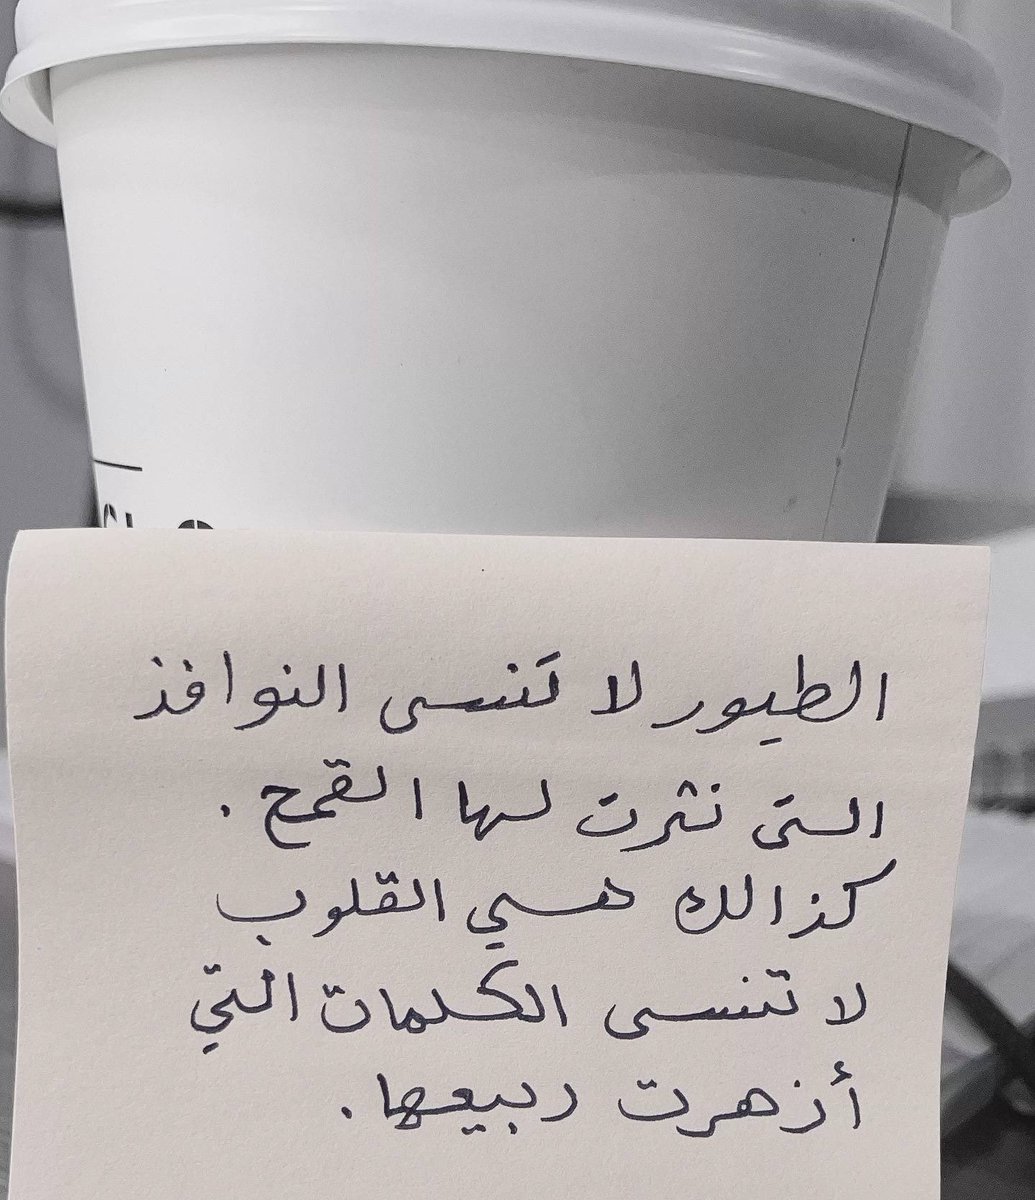 الطيور لا تنسى النوافذ
التى نثرت لها القمح .
كذالك هي القلوب
لا تنسى الكلمات التي
أزهرت ربيعها .